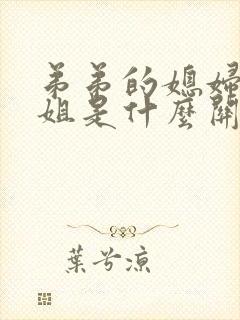 弟弟的媳婦
姐是什麼關
葉兮涼